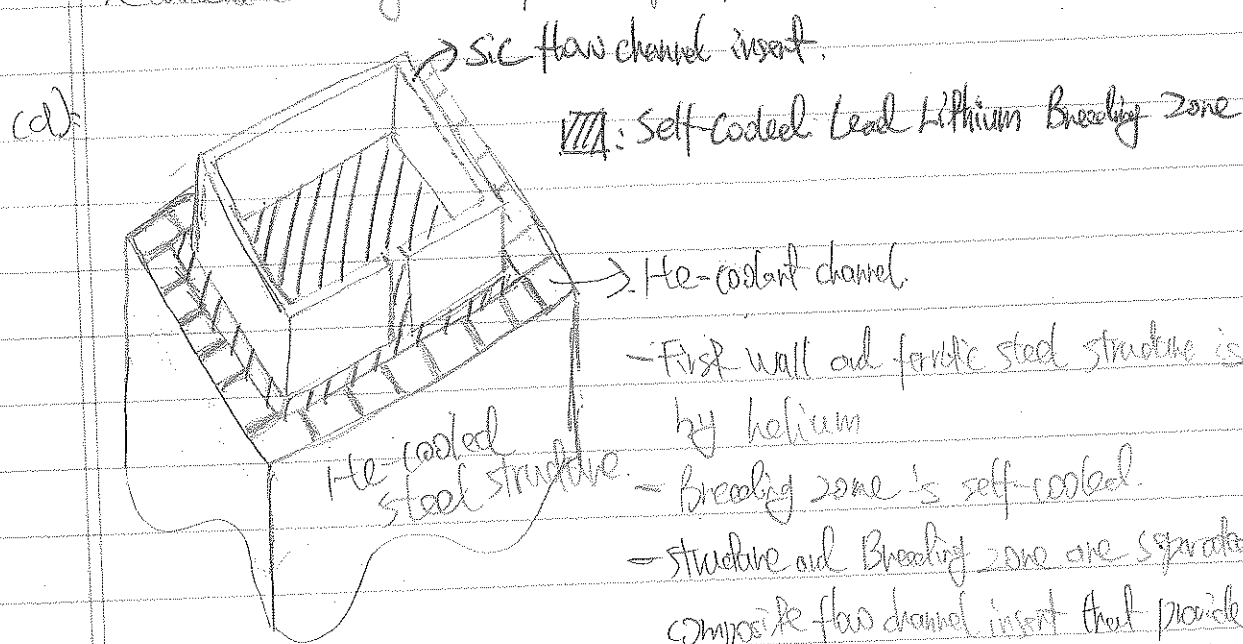 (d):
SiC flow channel insert.
: Self-Cooled Lead Lithium Breeding zone
He-coolant channel.
- First wall and ferritic steel structure is
by helium
He-cooled
steel structure.
- Breeding zone is self-cooled.
- structure and Breeding zone are separate
composite flow channel insert that provide